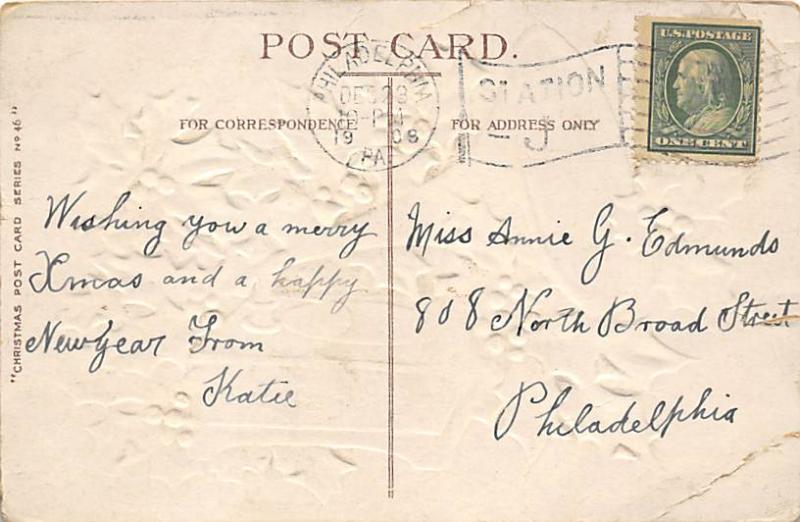 POST CARD.
PHILADELPHIA
DEC 23
19 08
PA
STATION
J
U.S. POSTAGE
ONE CENT
FOR CORRESPONDENCE
FOR ADDRESS ONLY
"CHRISTMAS POST CARD SERIES No 46"
Wishing you a merry
Xmas and a happy
New Year From
Katie
Miss Annie G. Edmunds
808 North Broad Street
Philadelphia